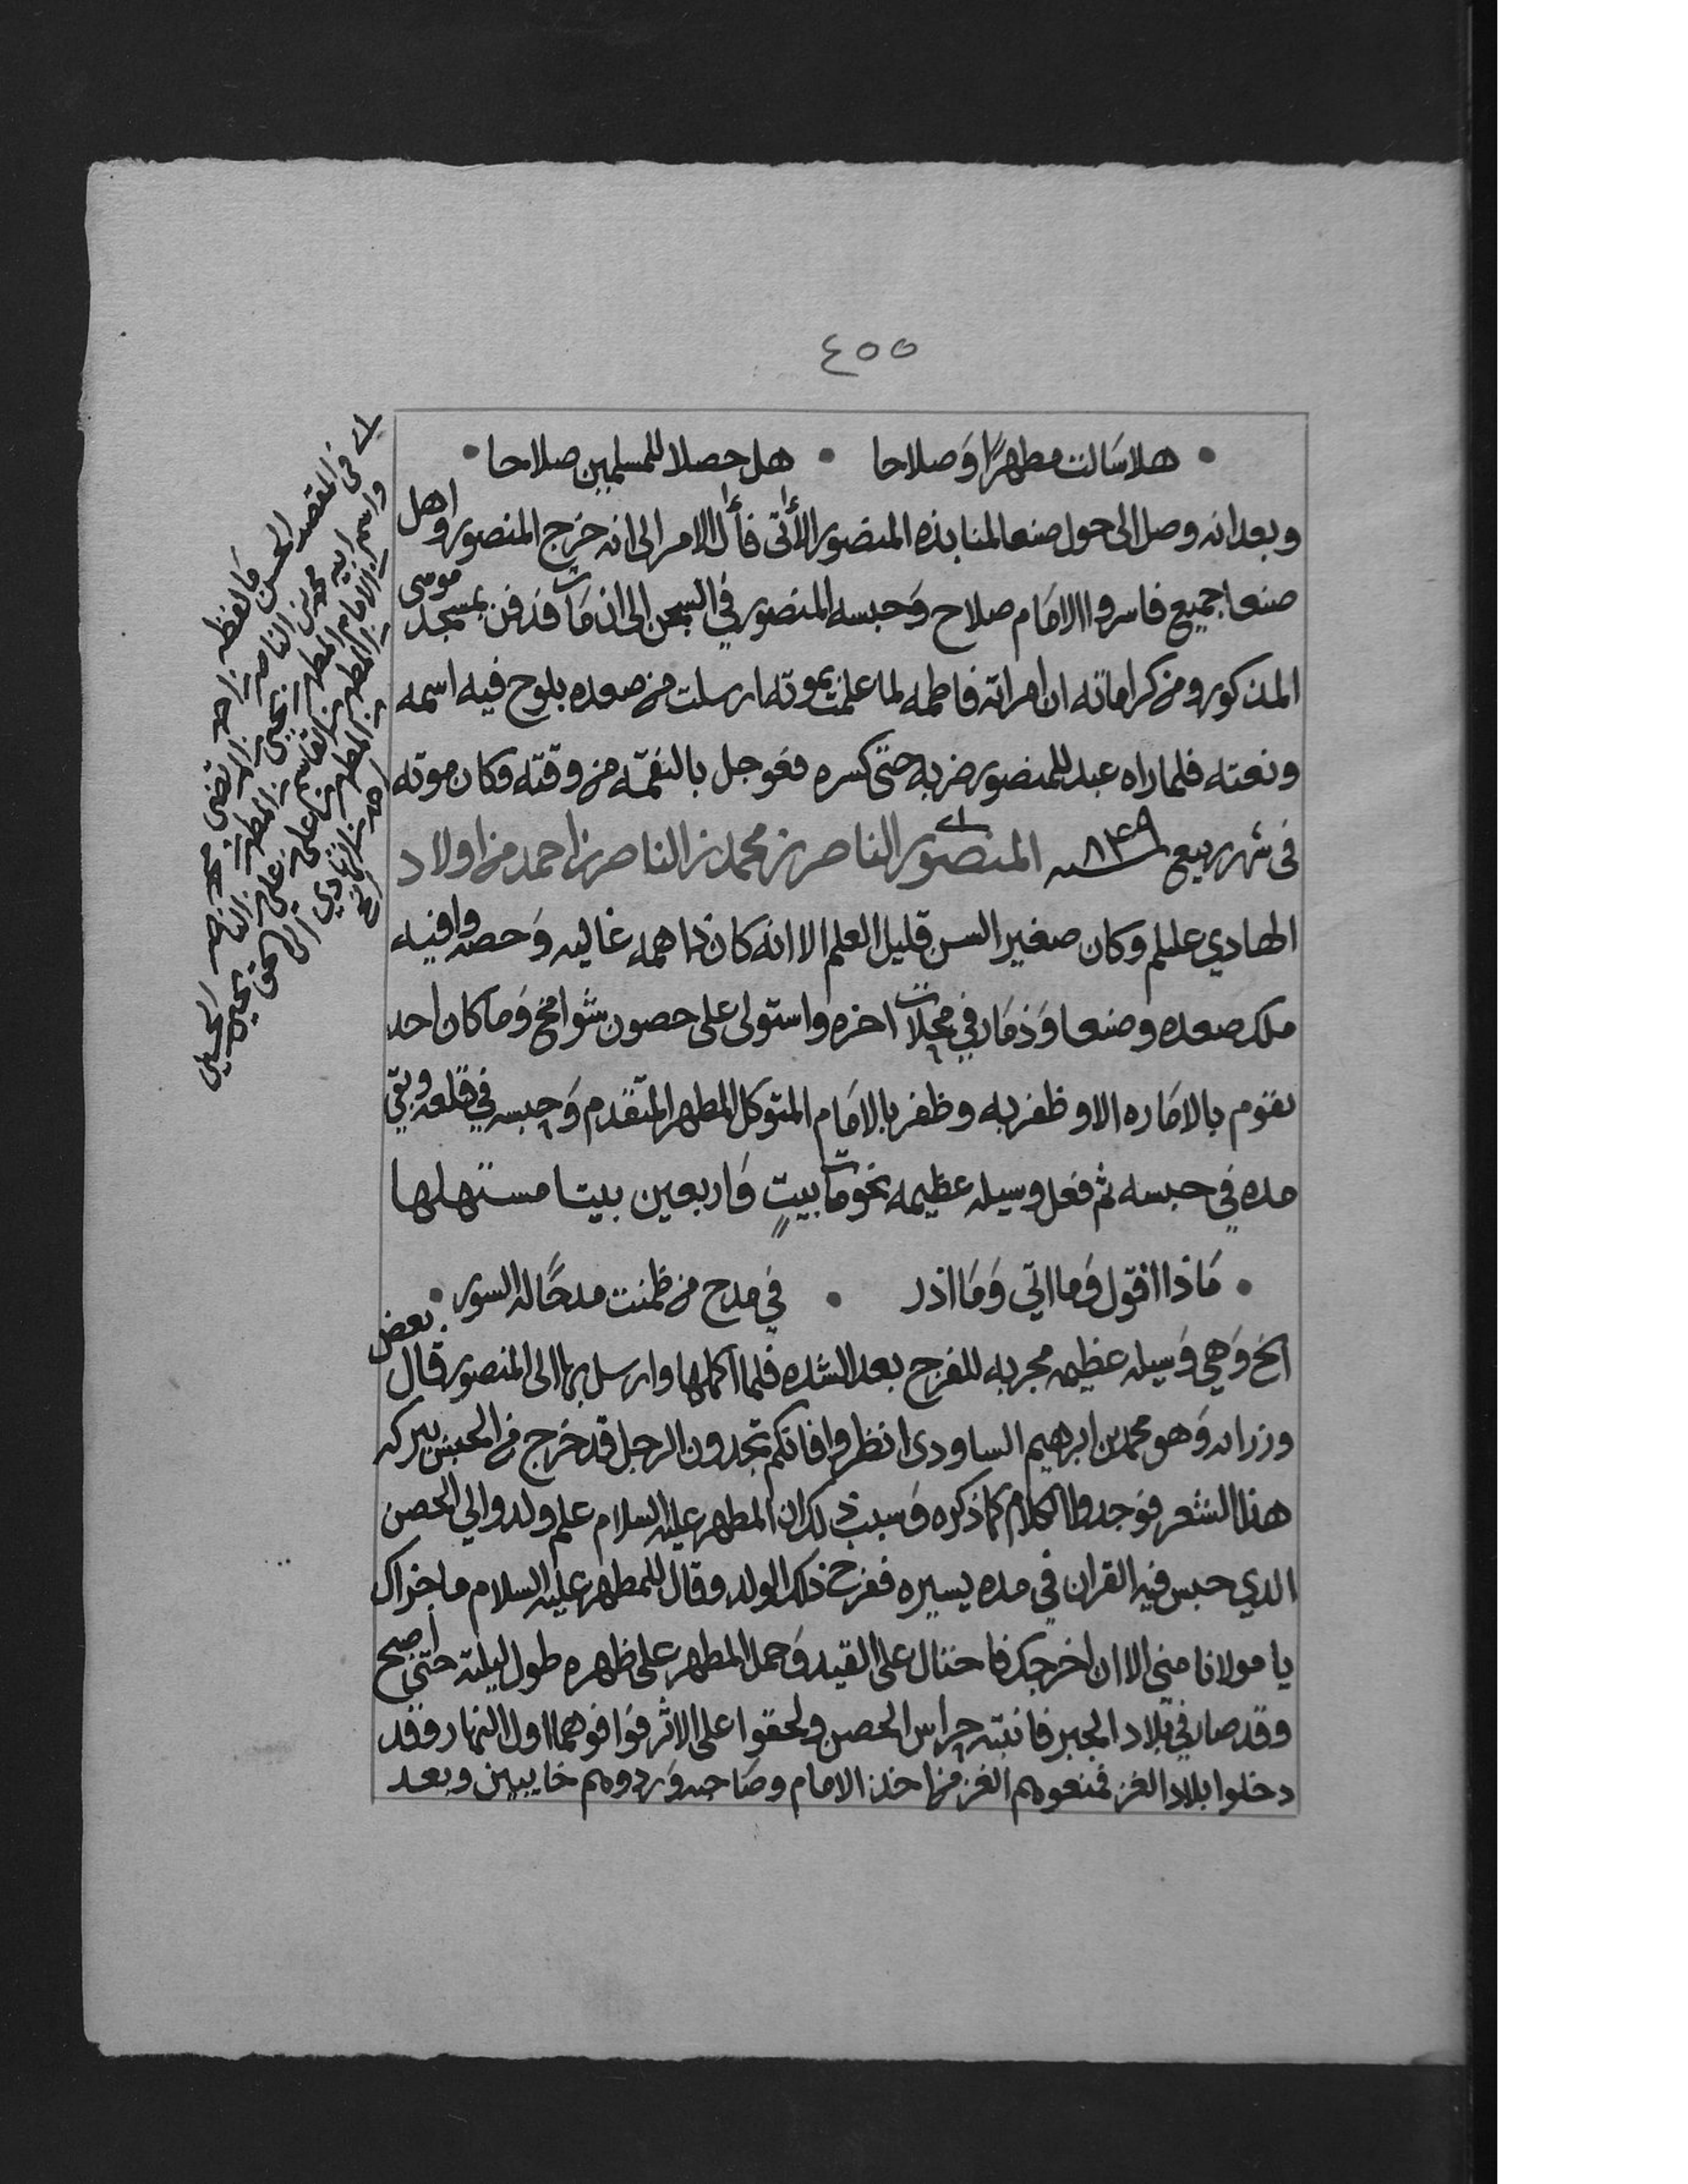 ٤٥٥
هلا سالت مطهرًا وصلاحا • هل حصلا للمسلمين صلاحا
وبعد انه وصل الى حول صنعا لمنابذه المنصور الأتى فأل الامر الى انه خرج المنصور واهل
صنعا جميع فاسروا الامام صلاح وحبسه المنصور في السجن الى ان مات فدفن بمسجد موسى
المذكور ومن كراماته ان امراته فاطمه لما علمت بموته ارسلت من صعده بلوح فيه اسمه
ونعته فلما راه عبد للمنصور ضربه حتى كسره فعوجل بالنقمه من وقته وكان موته
في شهر ربيع سنه ٨٤٩ المنصور الناصر بن محمد بن الناصر بن احمد من اولاد
الهادي عليلم وكان صغير السن قليل العلم الا انه كان ذا همه عاليه وحصه وافيه
ملك صعده وصنعا وذمار في محلات اخره واستولى على حصون شوامخ وما كان احد
يقوم بالاماره الا وظفر به وظفر بالامام المتوكل المطهر المتقدم وحبسه في قلعه وبقي
مده في حبسه ثم فعل وسيله عظيمه نحو مات بيتٍ واربعين بيتا مستهلها
ماذا اقول وما اتي وما اذر • في مدح من ظمنت مدحًا له السور
الخ وهي وسيله عظيمه مجربه للفرج بعد الشده فلما اكملها وارسل بها الى المنصور قال بعض
وزرائه وهو محمد بن ابرهيم الساودي انظروا فانكم تجدون الرجل قد خرج من الحبس ببركه
هذا الشعر فوجدوا الكلام كما ذكره وسبب ذلك ان المطهر عليه السلام علم ولد والي الحصن
الذي حبس فيه القران في مده يسيره ففرح ذلك الولد وقال للمطهر عليه السلام ما جزاك
يا مولانا مني الا ان اخرجك فاحتال على القيد وحمل المطهر على ظهره طول ليلته حتى اصبح
وقد صار في بلاد الجبر فانتبه حراس الحصن ولحقوا على الاثر فوافوهما اول النهار وقد
دخلوا بلاد الغز فمنعوهم الغز من اخذ الامام وصاحبه وردوهم خايبين وبعد
في المقصد الحسن ما لفظه
واسم ابيه محمد بن الناصر بن احمد
بن الامام المطهر بن يحيى بن المرتضى
بن المطهر بن القاسم بن المطهر بن
بن المطهر بن علي بن الناصر
احمد بن الهادي الى الحق يحيى بن الحسين